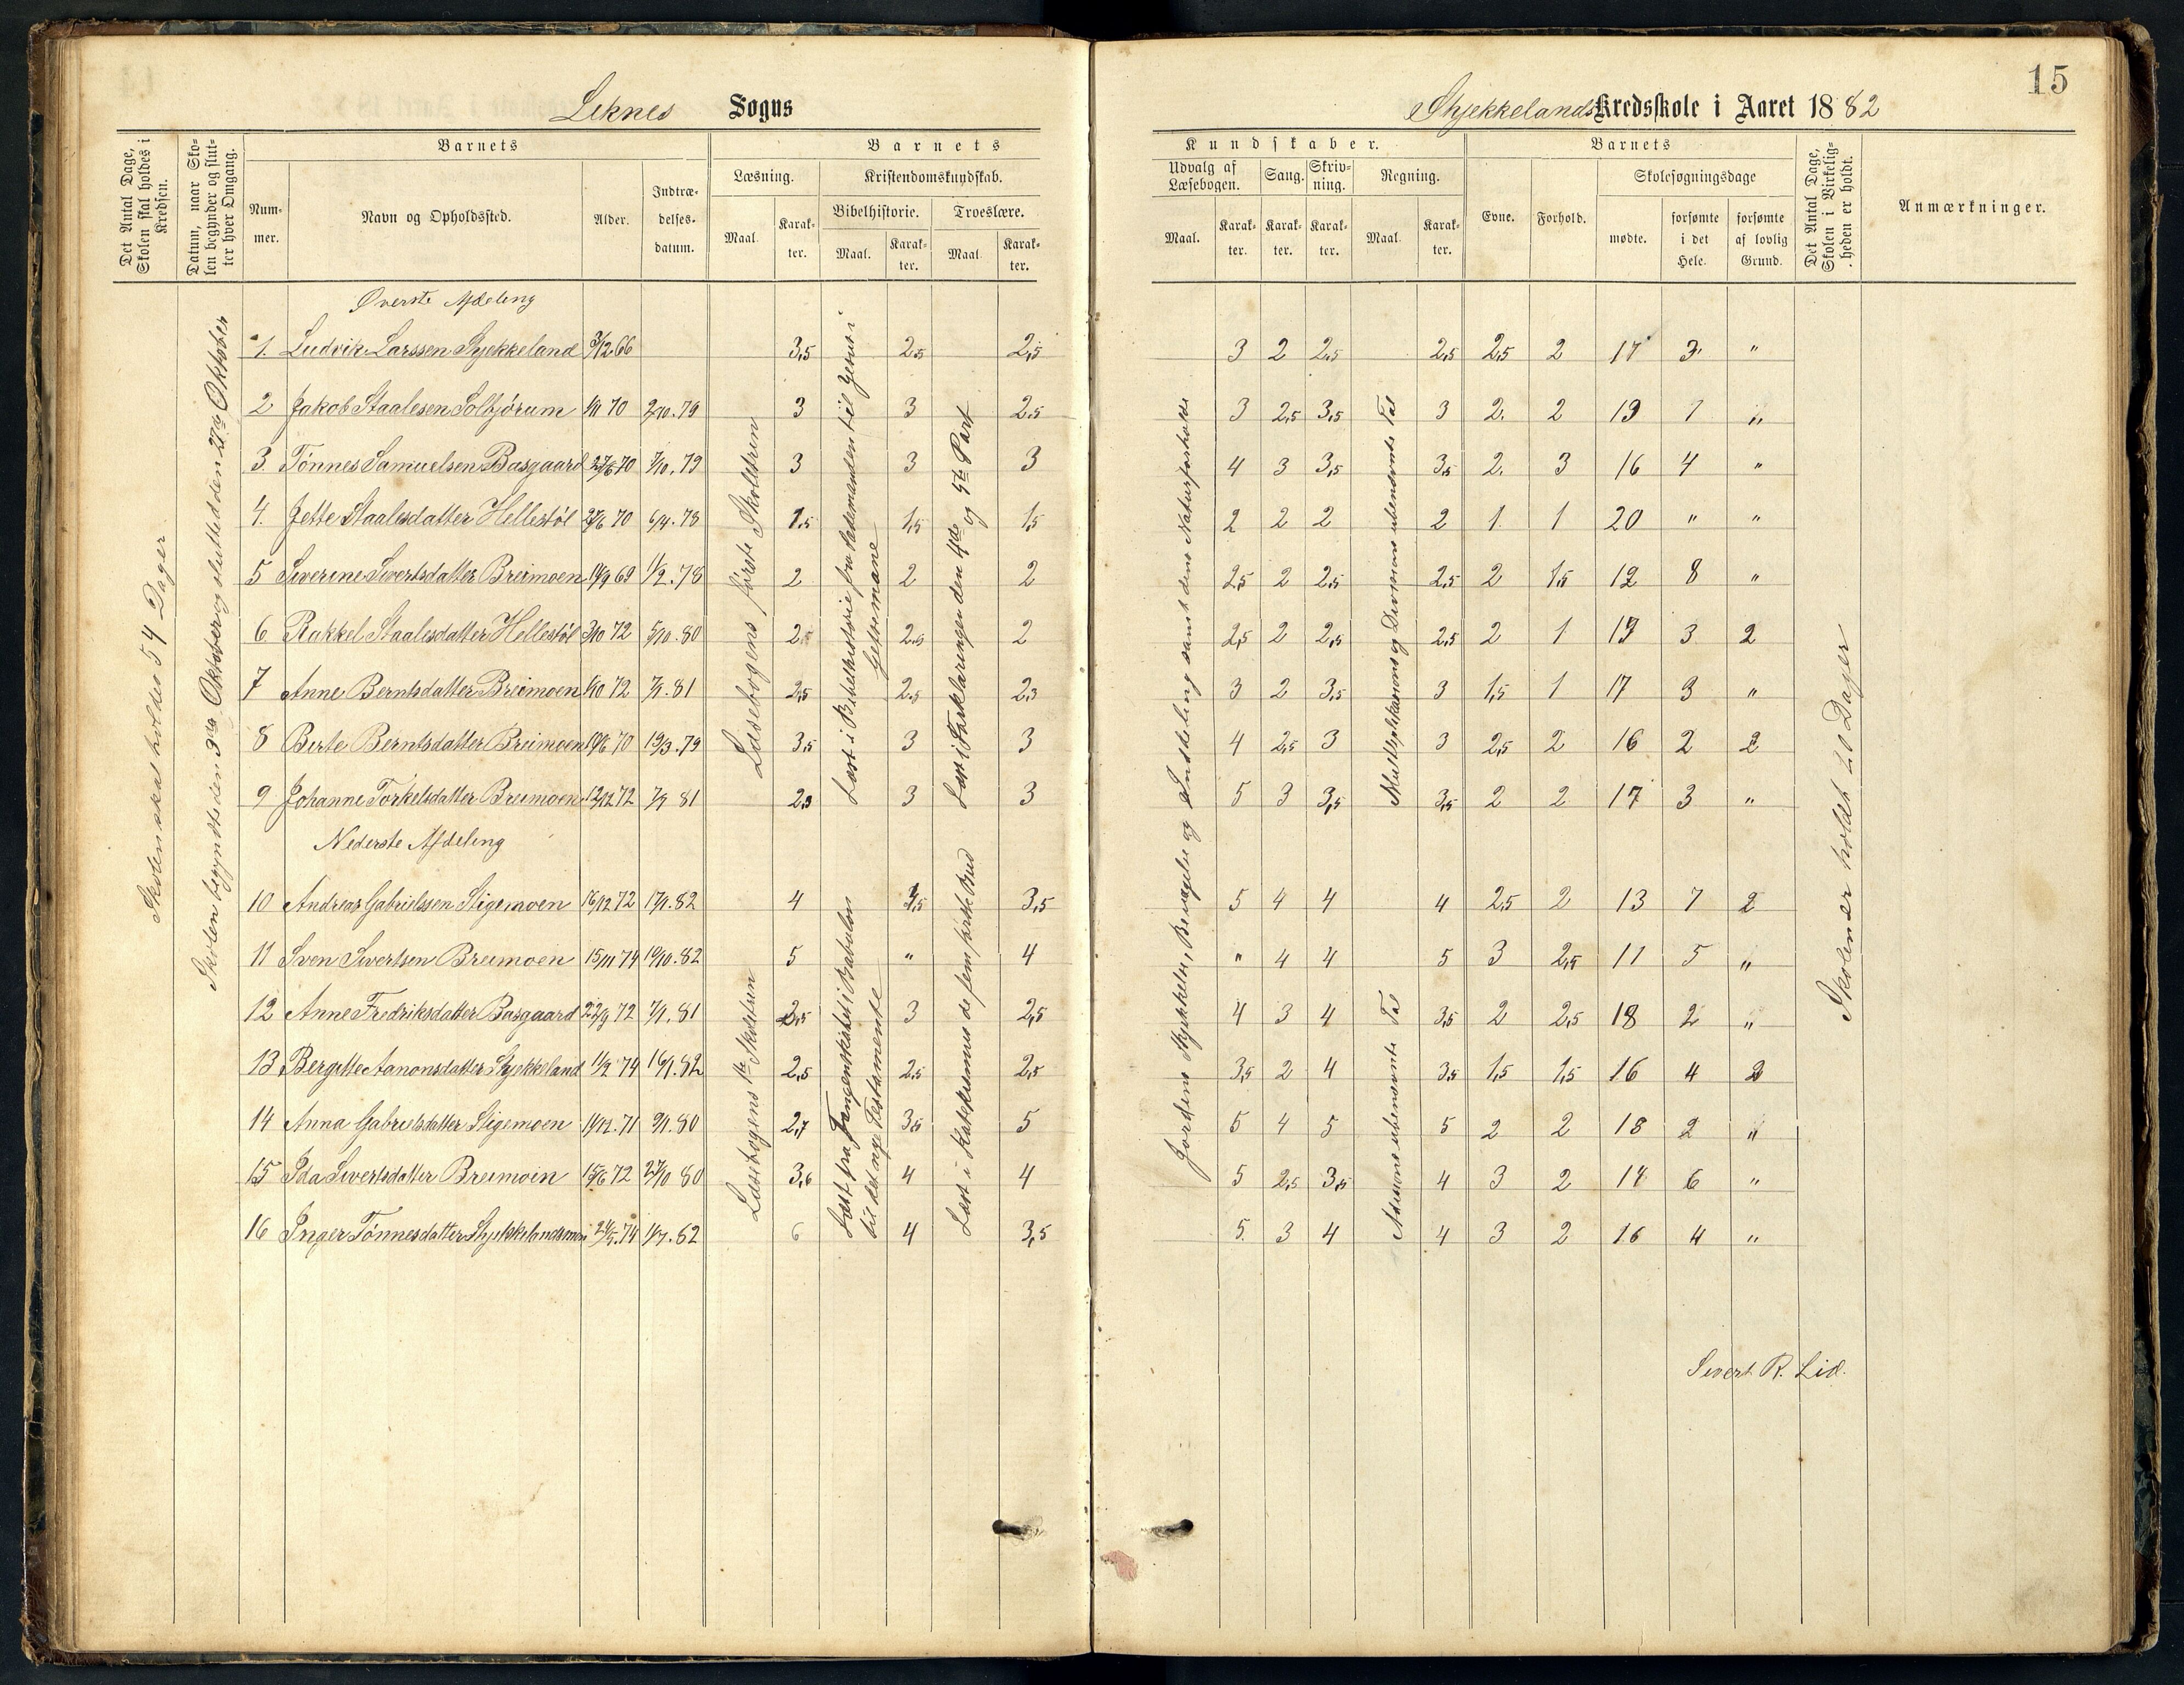 Leknes Sogns
Skjekkelands Kredsskole i Aaret 1882
15
Det Antal Dage, Skolen skal holdes i Kredsen.
Datum, naar Skolen begynder og slutter hver Omgang.
Barnets
Nummer.
Navn og Opholdssted.
Alder.
Indtrædelsesdatum.
Barnets
Læsning.
Maal.
Karakter.
Kristendomskundskab.
Bibelhistorie.
Maal.
Karakter.
Troeslære.
Maal.
Karakter.
Kundskaber.
Udvalg af Læsebogen.
Maal.
Karakter.
Sang.
Karakter.
Skrivning.
Karakter.
Regning.
Maal.
Karakter.
Barnets
Evne.
Forhold.
Skolesøgningsdage
mødte.
forsømte i det Hele.
forsømte af lovlig Grund.
Det Antal Dage, Skolen i Virkeligheden er holdt.
Anmærkninger.
Skolen skal holdes 54 Dager
Skolen begyndte den 3die Oktober og slutted den 27de Oktober
Øverste Afdeling
1. Ludvik Larssen Skjekkeland 3/12 66 3,5 2,5 2,5 3 2 2,5 2,5 2,5 2 17 3 "
2 Jakob Staalesen Solbjørum 1/11 70 2/10. 79 3 3 2,5 3 2,5 3,5 3 2. 2 19 1 "
3. Tønnes Samuelsen Basgaard 27/6 70 7/10. 79 3 3 3 4 3 3,5 3,5 2. 3 16 4 "
4. Jette Staalesdatter Hellestøl 27/6 70 6/4. 78 1,5 1,5 1,5 2 2 2 2 1. 1 20 " "
5 Severine Sivertsdatter Breimoen 14/9 69 1/2. 78 2 2 2 2,5 2 2,5 2,5 2 1,5 12 8 "
6 Rakkel Staalesdatter Hellestøl 3/10 72 5/10. 80 2,5 2,5 2 2,5 2 2,5 2,5 2 1 17 3 2
7 Anne Berntsdatter Breimoen 1/10 72 7/1. 81 2,5 2,5 2,3 3 2 3,5 3 1,5 1 17 3 "
8 Birte Berntsdatter Breimoen 19/6 70 19/3. 79 3,5 3 3 4 2,5 3 3 2,5 2 16 2 2
9 Johanne Torkelsdatter Breimoen 12/12 72 7/1 81 2,3 3 3 5 3 3,5 3,5 2 2 17 3 "
Læsebogens første Skoletrin
Læst i Bibelhistorie fra Lademanden til Jesus i Getsemane
Læst i Forklaringen den 4de og 5te Part
Multiplikasions og Divisions ubenævnte Tal
Nederste Afdeling
10 Andreas Gabrielssen Stigemoen 16/12 72 17/1. 82 4 3,5 3,5 5 4 4 4 2,5 2 13 7 2
11 Sven Sivertsen Breimoen 15/11 74 19/10. 82 5 " 4 " 4 4 5 3 2,5 11 5 "
12 Anne Fredriksdatter Basgaard 22/9 72 7/1. 81 2,5 3 2,5 4 3 4 3,5 2 2,5 18 2 "
13 Bergitte Aanonsdatter Skjekkeland 1/2 74 16/1. 82 2,5 2,5 2,5 3,5 2 4 3,5 1,5 1,5 16 4 2
14 Anna Gabrielsdatter Stigemoen 14/12. 71 9/1. 80 2,7 3,5 5 5 4 5 5 2 2 18 2 "
15 Ida Sivertsdatter Breimoen 15/6 72 27/10 80 3,6 4 4 5 2,5 3,5 4 3 2 14 6 "
16 Inger Tønnesdatter Skjekkelandsmoen 24/5. 74 1/7. 82 6 4 3,5 5. 3 4 4 3 2 16 4 "
Læsebogens 1ste Skoletrin
Læst fra Fangenskabet i Babylon til det nye Testamente
Læst i Katekismus de fem første Bud
Jordens Skikkelse, Bevægelse og Inddeling samt dens Naturforholde
Adisions ubenævnte Tal
Skolen er holdt 20 Dager
Sivert R. Lid.